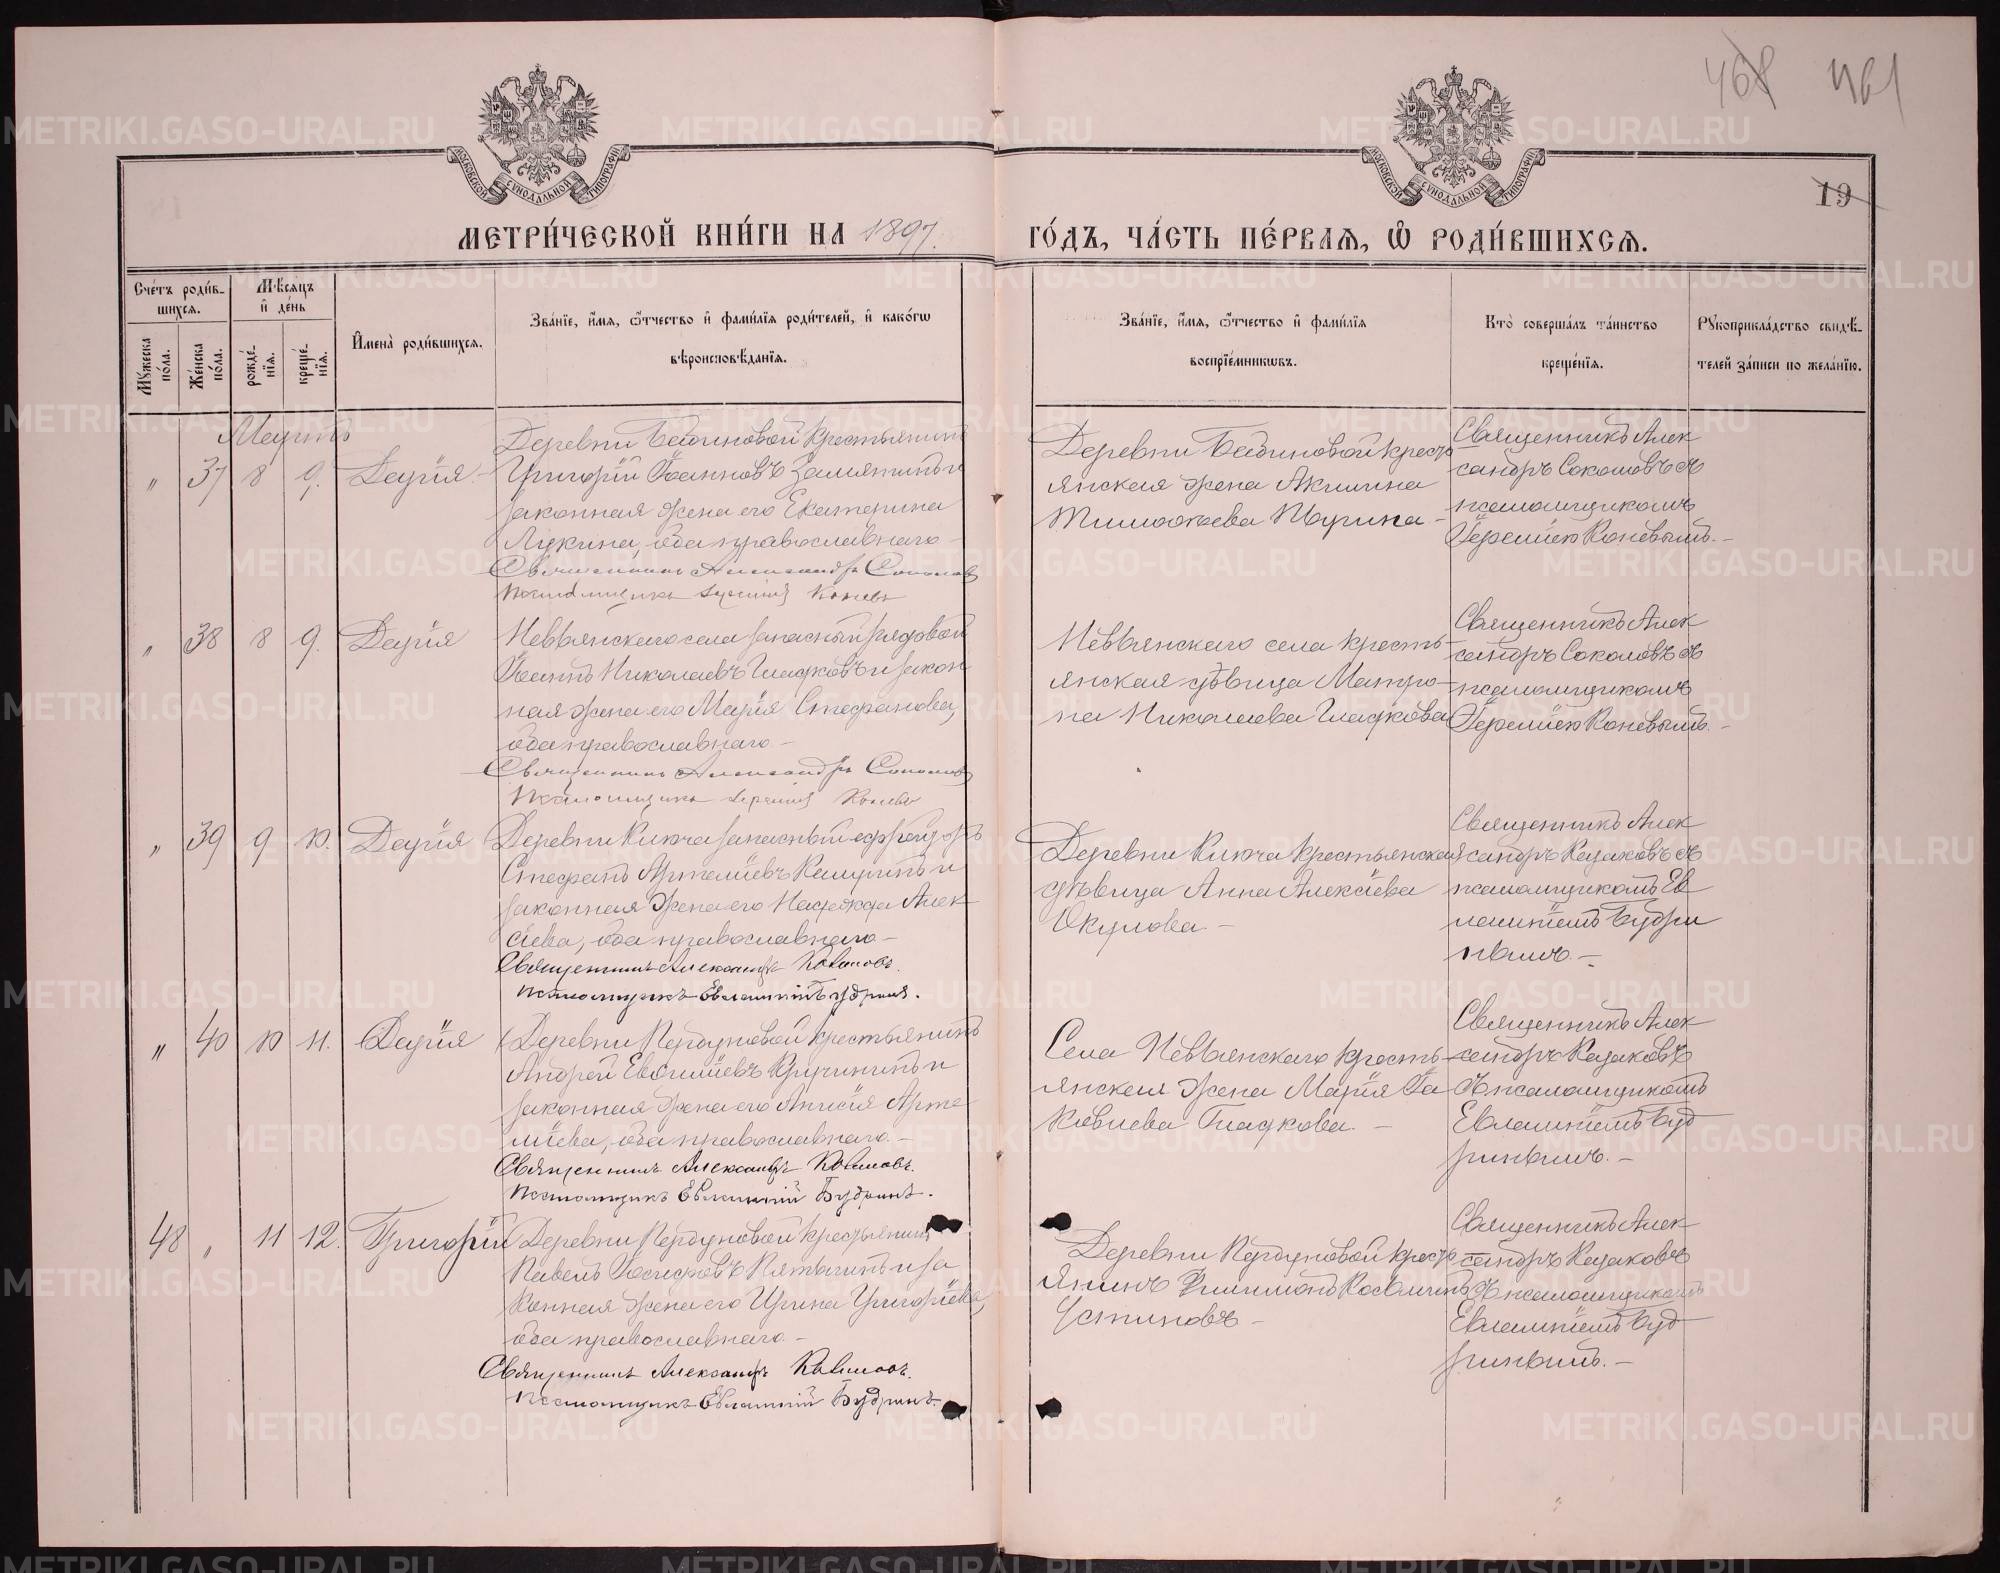 468 461
19
МОСКОВСКОЙ СѴНОДАЛЬНОЙ ТИПОГРАФІИ
МОСКОВСКОЙ СѴНОДАЛЬНОЙ ТИПОГРАФІИ
МЕТРИ́ЧЕСКОЙ КНИ́ГИ НА 1897. ГО́ДЪ, ЧА́СТЬ ПЕ́РВАЯ, Ѽ РОДИ́ВШИХСЯ.
Сче́тъ роди́в-
шихся.
Мѣсяцъ
и҆ де́нь
Мꙋ́жеска по́ла.
Же́нска по́ла.
рожде́-
нїя.
креще́-
нїя.
И҆мена̀ роди́вшихся.
Зва́нїе, и҆́мя, ѻ҆́тчество и҆ фами́лїя роди́телей, и҆ како́гѡ
вѣроисповѣ́данїя.
Зва́нїе, и҆́мя, ѻ҆́тчество и҆ фами́лїя
воспрїе́мникѡвъ.
Кто̀ соверша́лъ та́инство
креще́нїя.
Рꙋкоприкла́дство свидѣ́-
телей за́писи по жела́нїю.
Мартъ
" 37 8 9. Дарія.
Деревни Бединовой крестьянинъ
Григорій Іоанновъ Замятинъ и
законная жена его Екатерина
Лукина, оба православнаго
Священникъ Александръ Соколовъ
Псаломщикъ Іеремія Коневъ
Деревни Бединовой кресть-
янская жена Акилина
Тимофеева Шурина
Священникъ Алек
сандръ Соколовъ съ
псаломщикомъ
Іереміею Коневымъ.
" 38 8 9. Дарія
Невьянскаго села запасный рядовой
Іоаннъ Николаевъ Гладковъ и закон
ная жена его Марія Стефанова,
оба православнаго
Священникъ Александръ Соколовъ
Псаломщикъ Іеремія Коневъ
Невьянскаго села кресть-
янская дѣвица Матро-
на Николаева Гладкова
Священникъ Алек
сандръ Соколовъ съ
псаломщикомъ
Іереміею Коневымъ.
" 39 9 10. Дарія
Деревни Ключа запасный ефрейторъ
Стефанъ Артеміевъ и
законная жена его Надежда Алек
сіева, оба православнаго
Священникъ Александръ Казаковъ.
Псаломщикъ Евлампій Будринъ.
Деревни Ключа крестьянская
дѣвица Анна Алексіева
Окулова
Священникъ Алек
сандръ Казаковъ съ
псаломщикомъ Ев
лампіемъ Будри
нымъ.
" 40 10 11. Дарія
Деревни Пердуновой крестьянинъ
Андрей Евфиміевъ Кручининъ и
законная жена его Анисія Арте
міева, оба православнаго
Священникъ Александръ Казаковъ.
Псаломщикъ Евлампій Будринъ.
Села Невьянскаго кресть-
янская жена Марія Іа
ковлева Гладкова.
Священникъ Алек
сандръ Казаковъ
съ псаломщикомъ
Евлампіемъ Буд
ринымъ.
48 " 11 12. Григорій
Деревни Пердуновой крестьянинъ
Павелъ Іосифовъ Пятыгинъ и за
конная жена его Ирина Григоріева,
оба православнаго
Священникъ Александръ Казаковъ.
Псаломщикъ Евлампій Будринъ.
Деревни Пердуновой кресть
янинъ Филимонъ
Устиновъ
Священникъ Алек
сандръ Казаковъ
съ псаломщикомъ
Евлампіемъ Буд
ринымъ.
METRIKI.GASO-URAL.RU